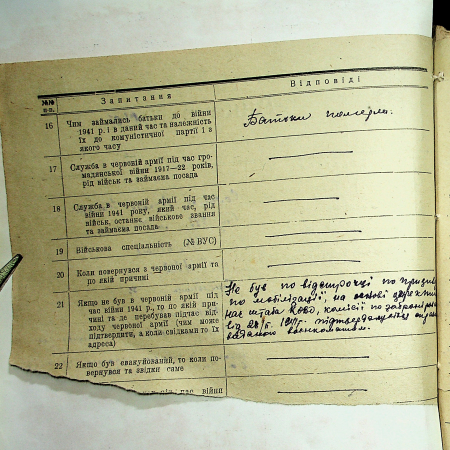 №№ п-п.
Запитання
Відповіді
16
Чим займались батьки до війни
1941 р. і в даний час та належність
їх до комуністичної партії і з
якого часу
Батьки померли.
17
Служба в червоній армії під час гро-
мадянської війни 1917—22 років,
рід військ та займаєма посада
18
Служба в червоній армії під час
війни 1941 року, який час, рід
військ, останнє військове звання
та займаєма посада
19
Військова спеціальність (№ ВУС)
20
Коли повернувся з червоної армії та
по якій причині
21
Якщо не був в червоній армії під
час війни 1941 р., то по якій при-
чині та де перебував підчас від-
ходу червоної армії (чим може
підтвердити, а коли свідками то їх
адреса)
Не був по відстрочці по призиву
по мобілізації, на основі
від 1941 г.
22
Якщо був евакуйований, то коли по-
вернувся та звідки саме
час війни